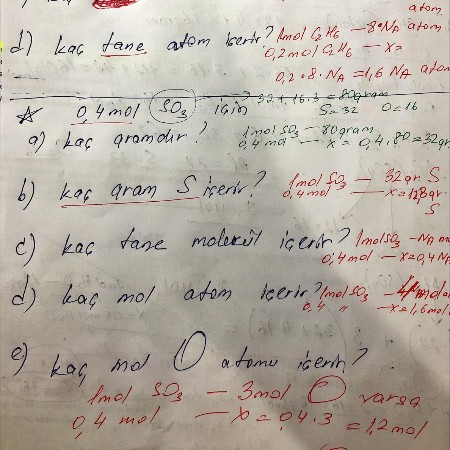 atom
d) kaç tane atom içerir? 1mol C2H6 — 8•NA atom
0,2mol C2H6 — x=
0,2•8•NA=1,6 NA atom
32+16.3=80gram
☆ 0,4 mol SO3 için S=32 O=16
a) kaç gramdır? 1mol SO3 — 80gram
0,4 mol — x=0,4.80=32gr
b) kaç gram S içerir? 1mol SO3 — 32gr S
0,4mol — x=12,8gr
S
c) kaç tane molekül içerir? 1molSO3 — NA m
0,4mol — x=0,4NA
d) kaç mol atom içerir? 1mol SO3 — 4mol
0,4 " — x=1,6mol
e) kaç mol O atomu içerir?
1mol SO3 — 3mol O varsa
0,4 mol — x=0,4.3=1,2mol